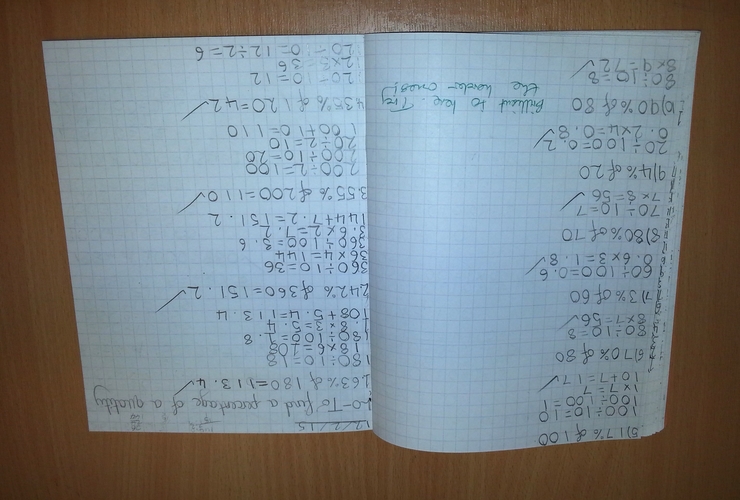 5) 17% of 100
100÷10=10
100÷100=1
1x7=7
10+7=17
6) 70% of 80
80÷10=8
8x7=56
7) 3% of 60
60÷100=0.6
0.6x3=1.8
8) 80% of 70
70÷10=7
7x8=56
9) 4% of 20
20÷100=0.2
0.2x4=0.8
10) 90% of 80
80÷10=8
8x9=72
Brilliant to here. Try
the harder ones!
12/2/15
L-O-To find a pecentage of a quatity
1 63% of 180=113.4
180÷10=18
18x6=108
180÷100=1.8
1.8x3=5.4
108+5.4=113.4
2 42% of 360=151.2
360÷10=36
36x4=144
360÷100=3.6
3.6x2=7.2
144+7.2=151.2
3 55% of 200=110
200÷2=100
200÷10=20
20÷2=10
100+10=110
4 35% of 120=42
120÷10=12
12x3=36
120÷10=12÷2=6